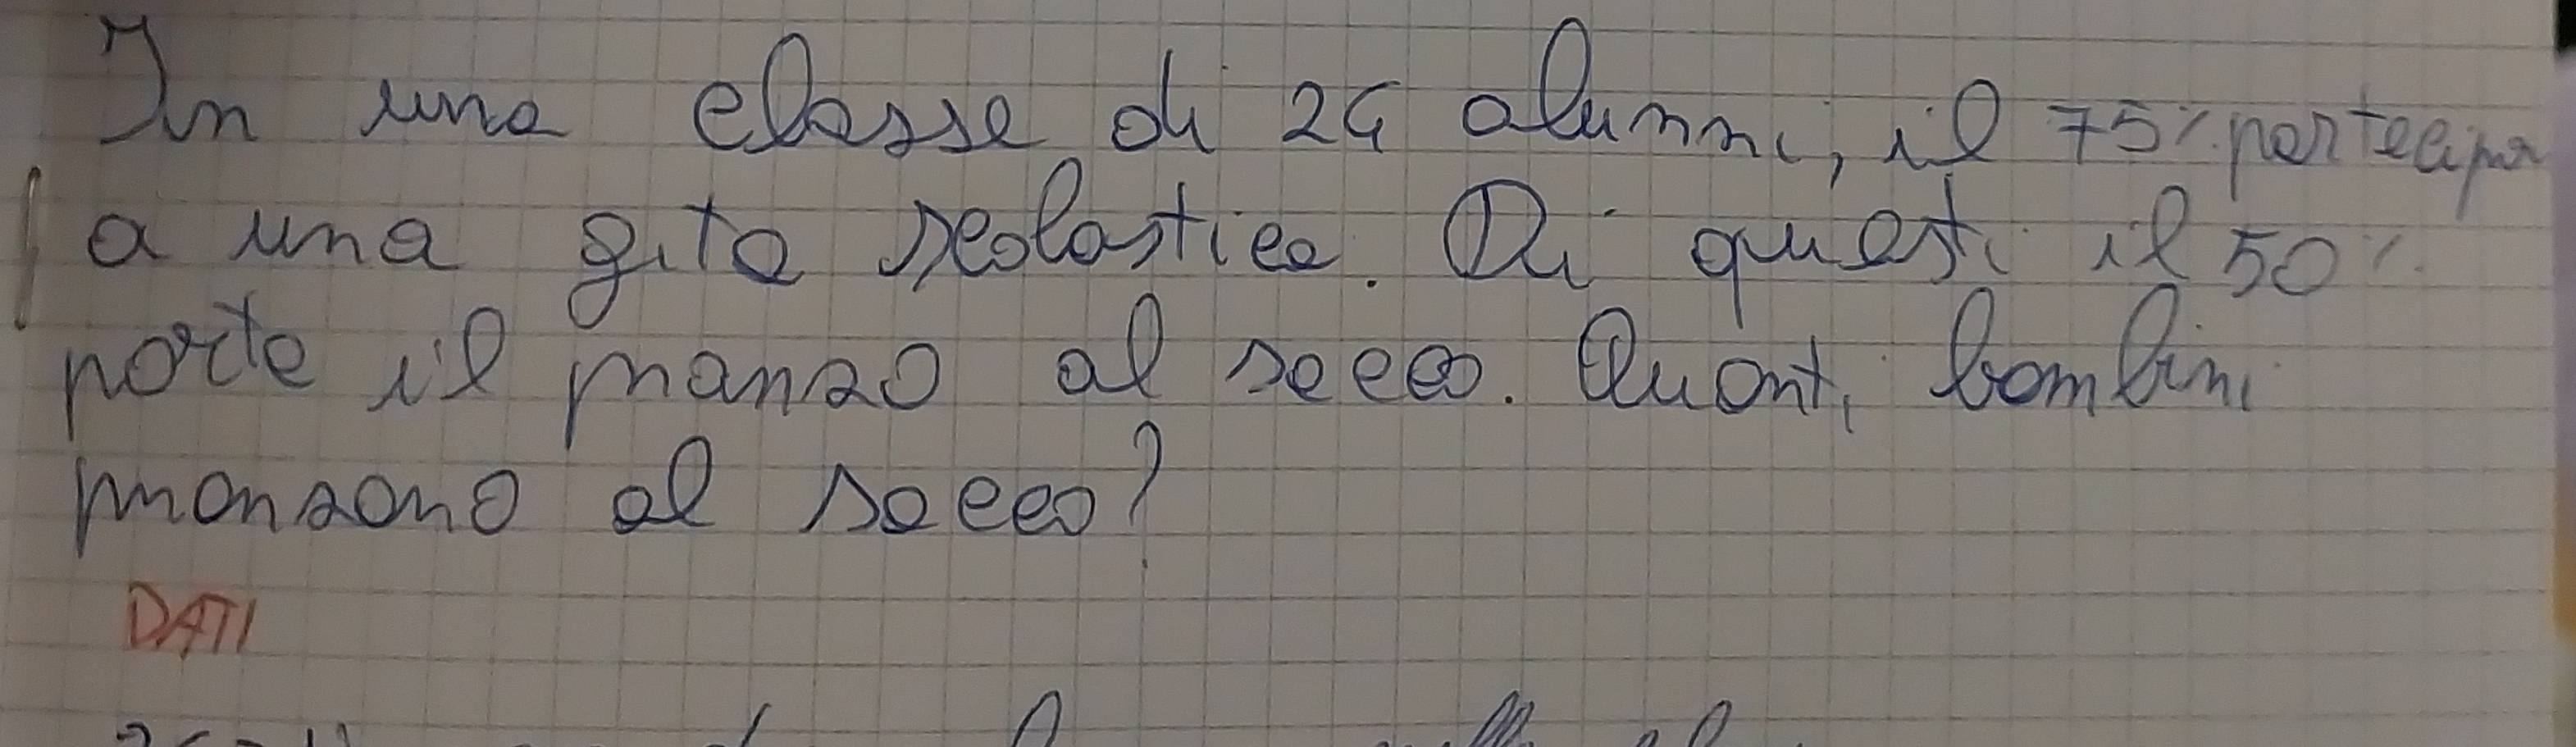 In una classe di 24 alunni, il 75% partecipa
a una gita scolastica. Di questi il 50%
porta il pranzo al sacco. Quanti bambini
pranzano al sacco?
DATI